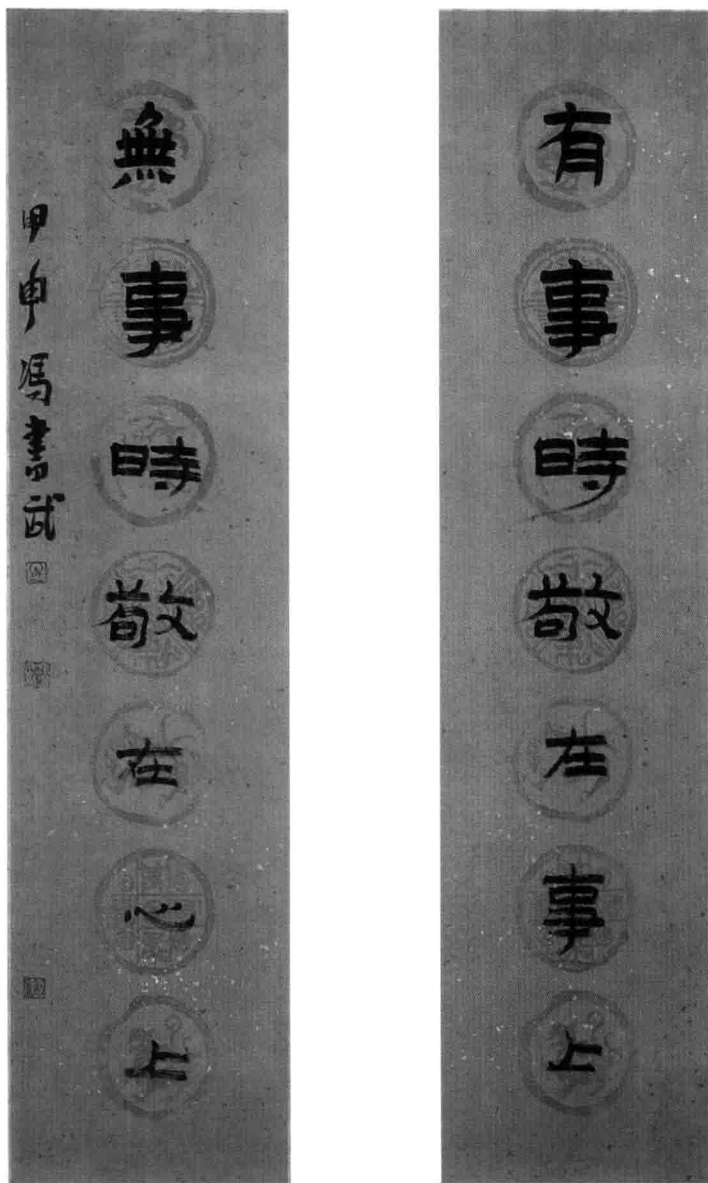 有事時敬在事上
無事時敬在心上
甲申馮書武